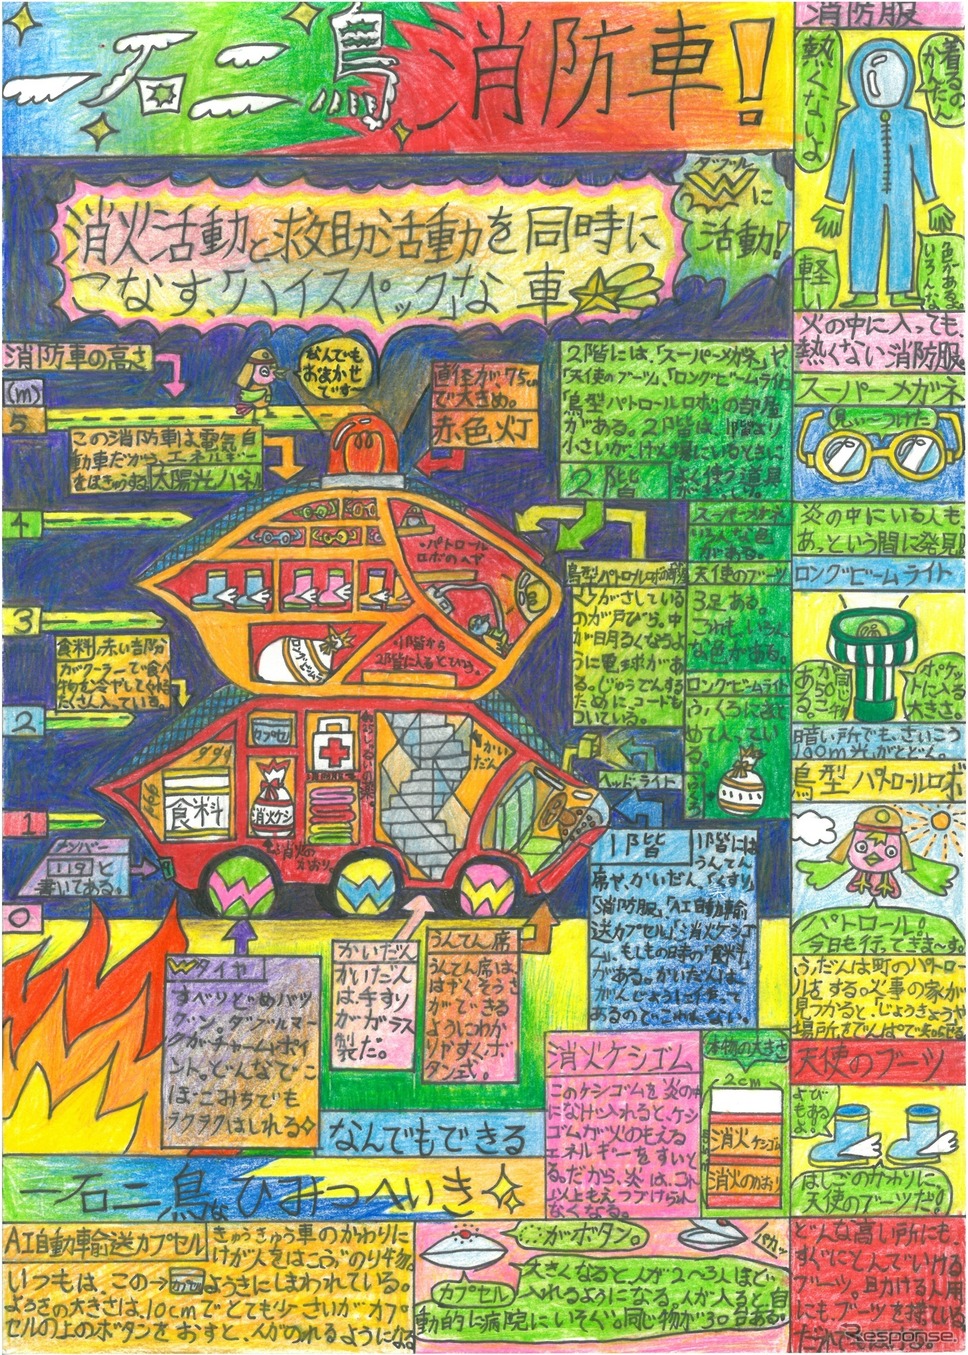 一石二鳥消防車!
消火活動と救助活動を同時に
こなす、「ハイスペック」な車
ダブル
Wに
活動!
消防服
熱くないよ
着るのかんたん
軽い
色がある。
いろんな
火の中に入っても、
熱くない消防服。
消防車の高さ
(m)
5
4
3
2
1
0
なんでも
おまかせ
です
直径が、75㎝
で大きめ。
赤色灯
この消防車は電気自
動車だから、エネルギー
太陽光パネル
2階には、「スーパーメガネ」や
「天使のブーツ」、「ロングビームライト」
「鳥型パトロールロボ」の部屋
がある。2階は、1階より
2階
よく使う道具
スーパーメガネ
見ぃーつけた
炎の中にいる人も、
あっという間に発見!
スーパーメガネ
いろんな色
がある。
天使のブーツ
3足ある。
これも、いろん
な色がある。
ロングビームライト
ふくろにまと
めて入ってい
る。
パトロール
ロボのへや
1階から
2階に入るとびら
ロングビーム
のが戸びら。中
が明るくなるよ
うに電球があ
る。じゅうでんする
ために、コードも
ついている。
食料
赤い部分
がクーラーで食べ
物を冷やしてくれる。
たくさん入っている。
ロングビームライト
ポケッ
トに入る
大きさ。
暗い所でも、さいこう
100m光がとどく。
鳥型パトロールロボ
パトロール。
今日も行ってきま〜す。
ふだんは町のパトロー
ルをする。火事の家が
見つかると、じょうきょうや
場所をでんぱで知らせる。
カプセル
かいだん
食料
消火ケシ
ヘッドライト
ナンバー
119と
書いてある。
1階
1階には
うんてん
席や、かいだん、「くすり」
「消防服」、「AI自動車輸
送カプセル」、「消火ケシゴ
ム」、もしもの時の「食料」
がある。かいだんは、
がんじょうに作って
あるのでこわれない。
Wタイヤ
すべりどめバツ
グン。ダブルマー
クがチャームポイ
ント。どんなでこ
ぼこみちでも
ラクラクはしれる
かいだん
かいだん
は、手すり
がガラス
製だ。
うんてん席
うんてん席は、
はやくそうさ
ができる
ようにわか
りやすくボ
タン式。
なんでもできる
一石二鳥なひみつへいき
消火ケシゴム
このケシゴムを炎の中
になげ入れると、ケシ
ゴムが火のもえる
エネルギーをすいと
る。だから、炎は、これ
以上もえつづけられ
なくなる。
本物の大きさ
2cm
消火ケシゴム
消火のかおり
天使のブーツ
よび
もある
よ。
はしごのかわりに
天使のブーツだ!
どんな高い所にも、
すぐにとんでいける
ブーツ。助ける人用
にも、ブーツを持ている
AI自動車輸送カプセル
きゅうきゅう車のかわりに
けが人をはこぶのり物。
いつもは、この→カプセルようきにしまわれている。
ようきの大きさは、10cmでとても小さいがカプ
セルの上のボタンをおすと、人がのれるようになる
がボタン。
パカッ
カプセル
大きくなると人が2〜3人ほど
入れるようになる。人が入ると、自
動的に病院にいそぐ。同じ物が30台ある。
Response.